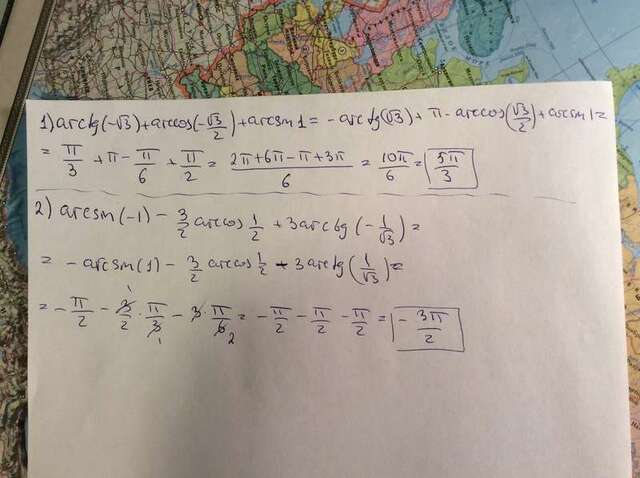 1) arctg(-√3)+arccos(-√3/2)+arcsin1 = -arctg(√3)+π-arccos(√3/2)+arcsin1=
= π/3 + π - π/6 + π/2 = (2π+6π-π+3π)/6 = 10π/6 = 5π/3
2) arcsin(-1) - 3/2 arccos 1/2 + 3arctg(-1/√3)=
= -arcsin(1) - 3/2 arccos 1/2 - 3arctg(1/√3)=
= -π/2 - 3/2 · π/3 - 3 · π/6 = -π/2 - π/2 - π/2 = -3π/2